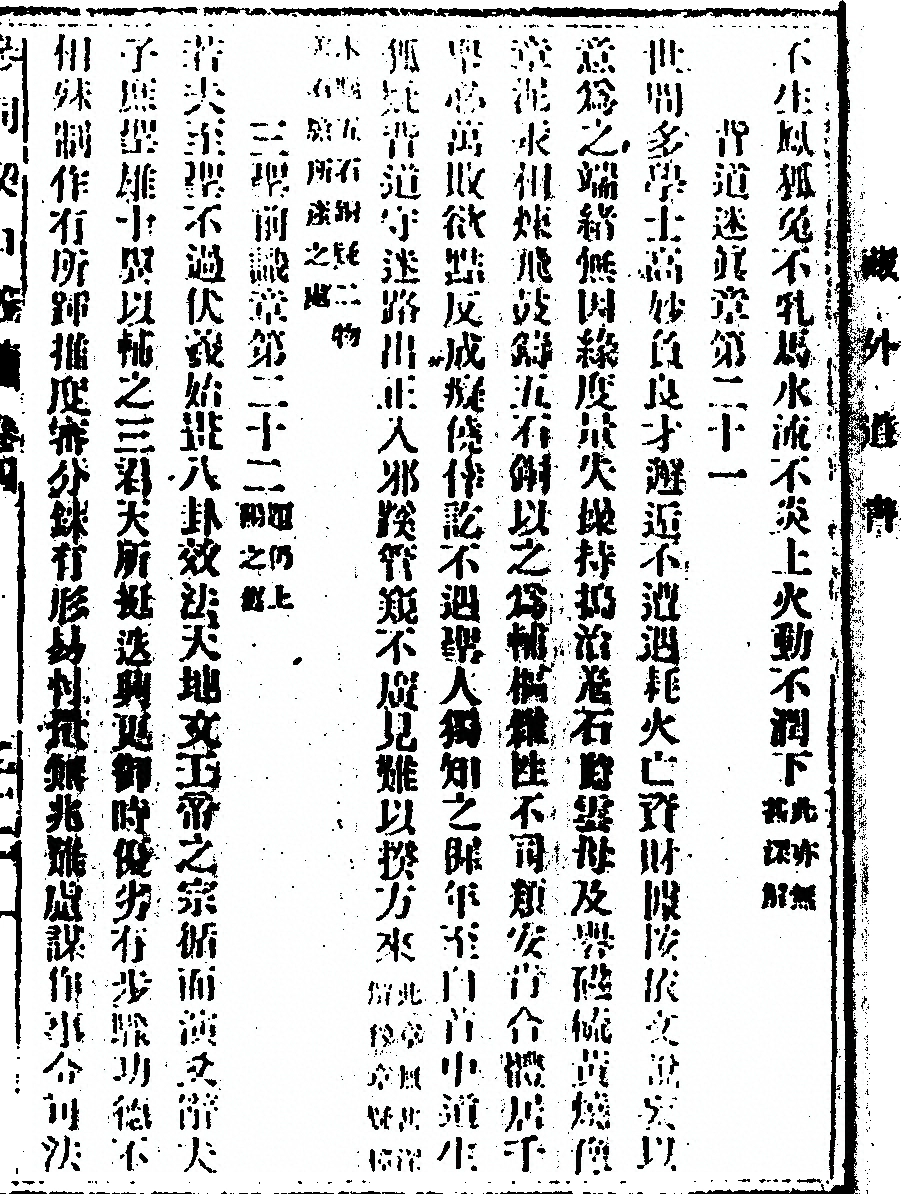 藏外道書
不生鳳狐兔不乳馬水流不炎上火動不潤下此亦無甚深解
背道迷眞章第二十一
世間多學士高妙負良才邂逅不遭遇耗火亡資財據按依文說妄以
意爲之端緒無因緣度量失操持擣治羌石膽雲母及礜磁硫黃燒豫
章泥汞相煉飛鼓鑄五石銅以之爲輔樞雜性不同類安肯合體居千
舉必萬敗欲黠反成癡僥倖訖不遇聖人獨知之穉年至白首中道生
狐疑背道守迷路出正入邪蹊管窺不廣見難以揆方來此章無甚深解後章疑擇
五石銅疑二物
所迷之處
三聖前識章第二十二
若夫至聖不過伏羲始畫八卦效法天地文王帝之宗循而演爻辭夫
子庶聖雄十翼以輔之三君天所挺迭興更御時優劣有步驟功德不
相殊制作有所踵推度審分銖有形易忖量無兆難慮謀作事令可法